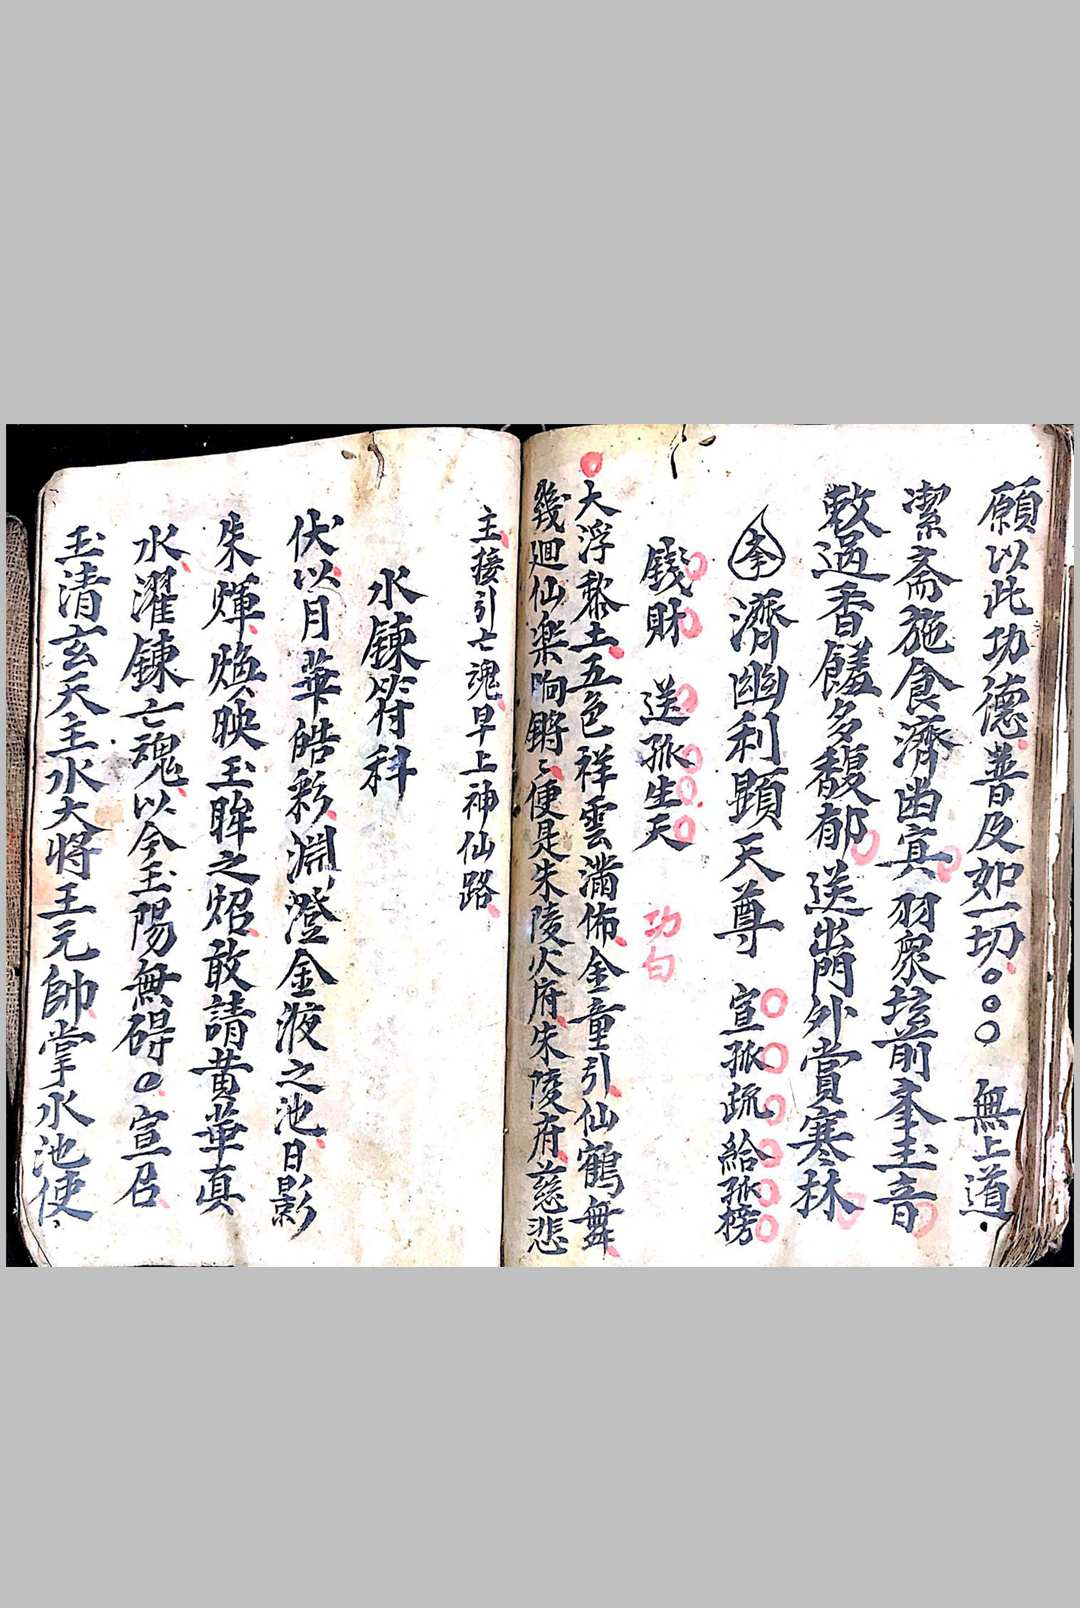 願以此功德普及如一切○○○ 無上道
潔斋施食濟幽㝠羽眾壇前奉玉音
敕过香饈多馥郁送出門外賞寒林
奉濟幽利顕天尊 宣孤疏給孤榜
錢財 送孤生天 功句
大浮黎土五色祥雲滿佈金童引仙鶴舞
幾廻仙楽响鏘々便是朱陵火府朱陵府慈悲
主接引亡魂早上神仙路
水鍊符科
伏以月華皓彩淵澄金液之池日影
朱煇焕映玉眸之炤敢請黄華真
水濯鍊亡魂以今玉陽無碍○宣召
玉清玄天主水大將王元帥掌水池使